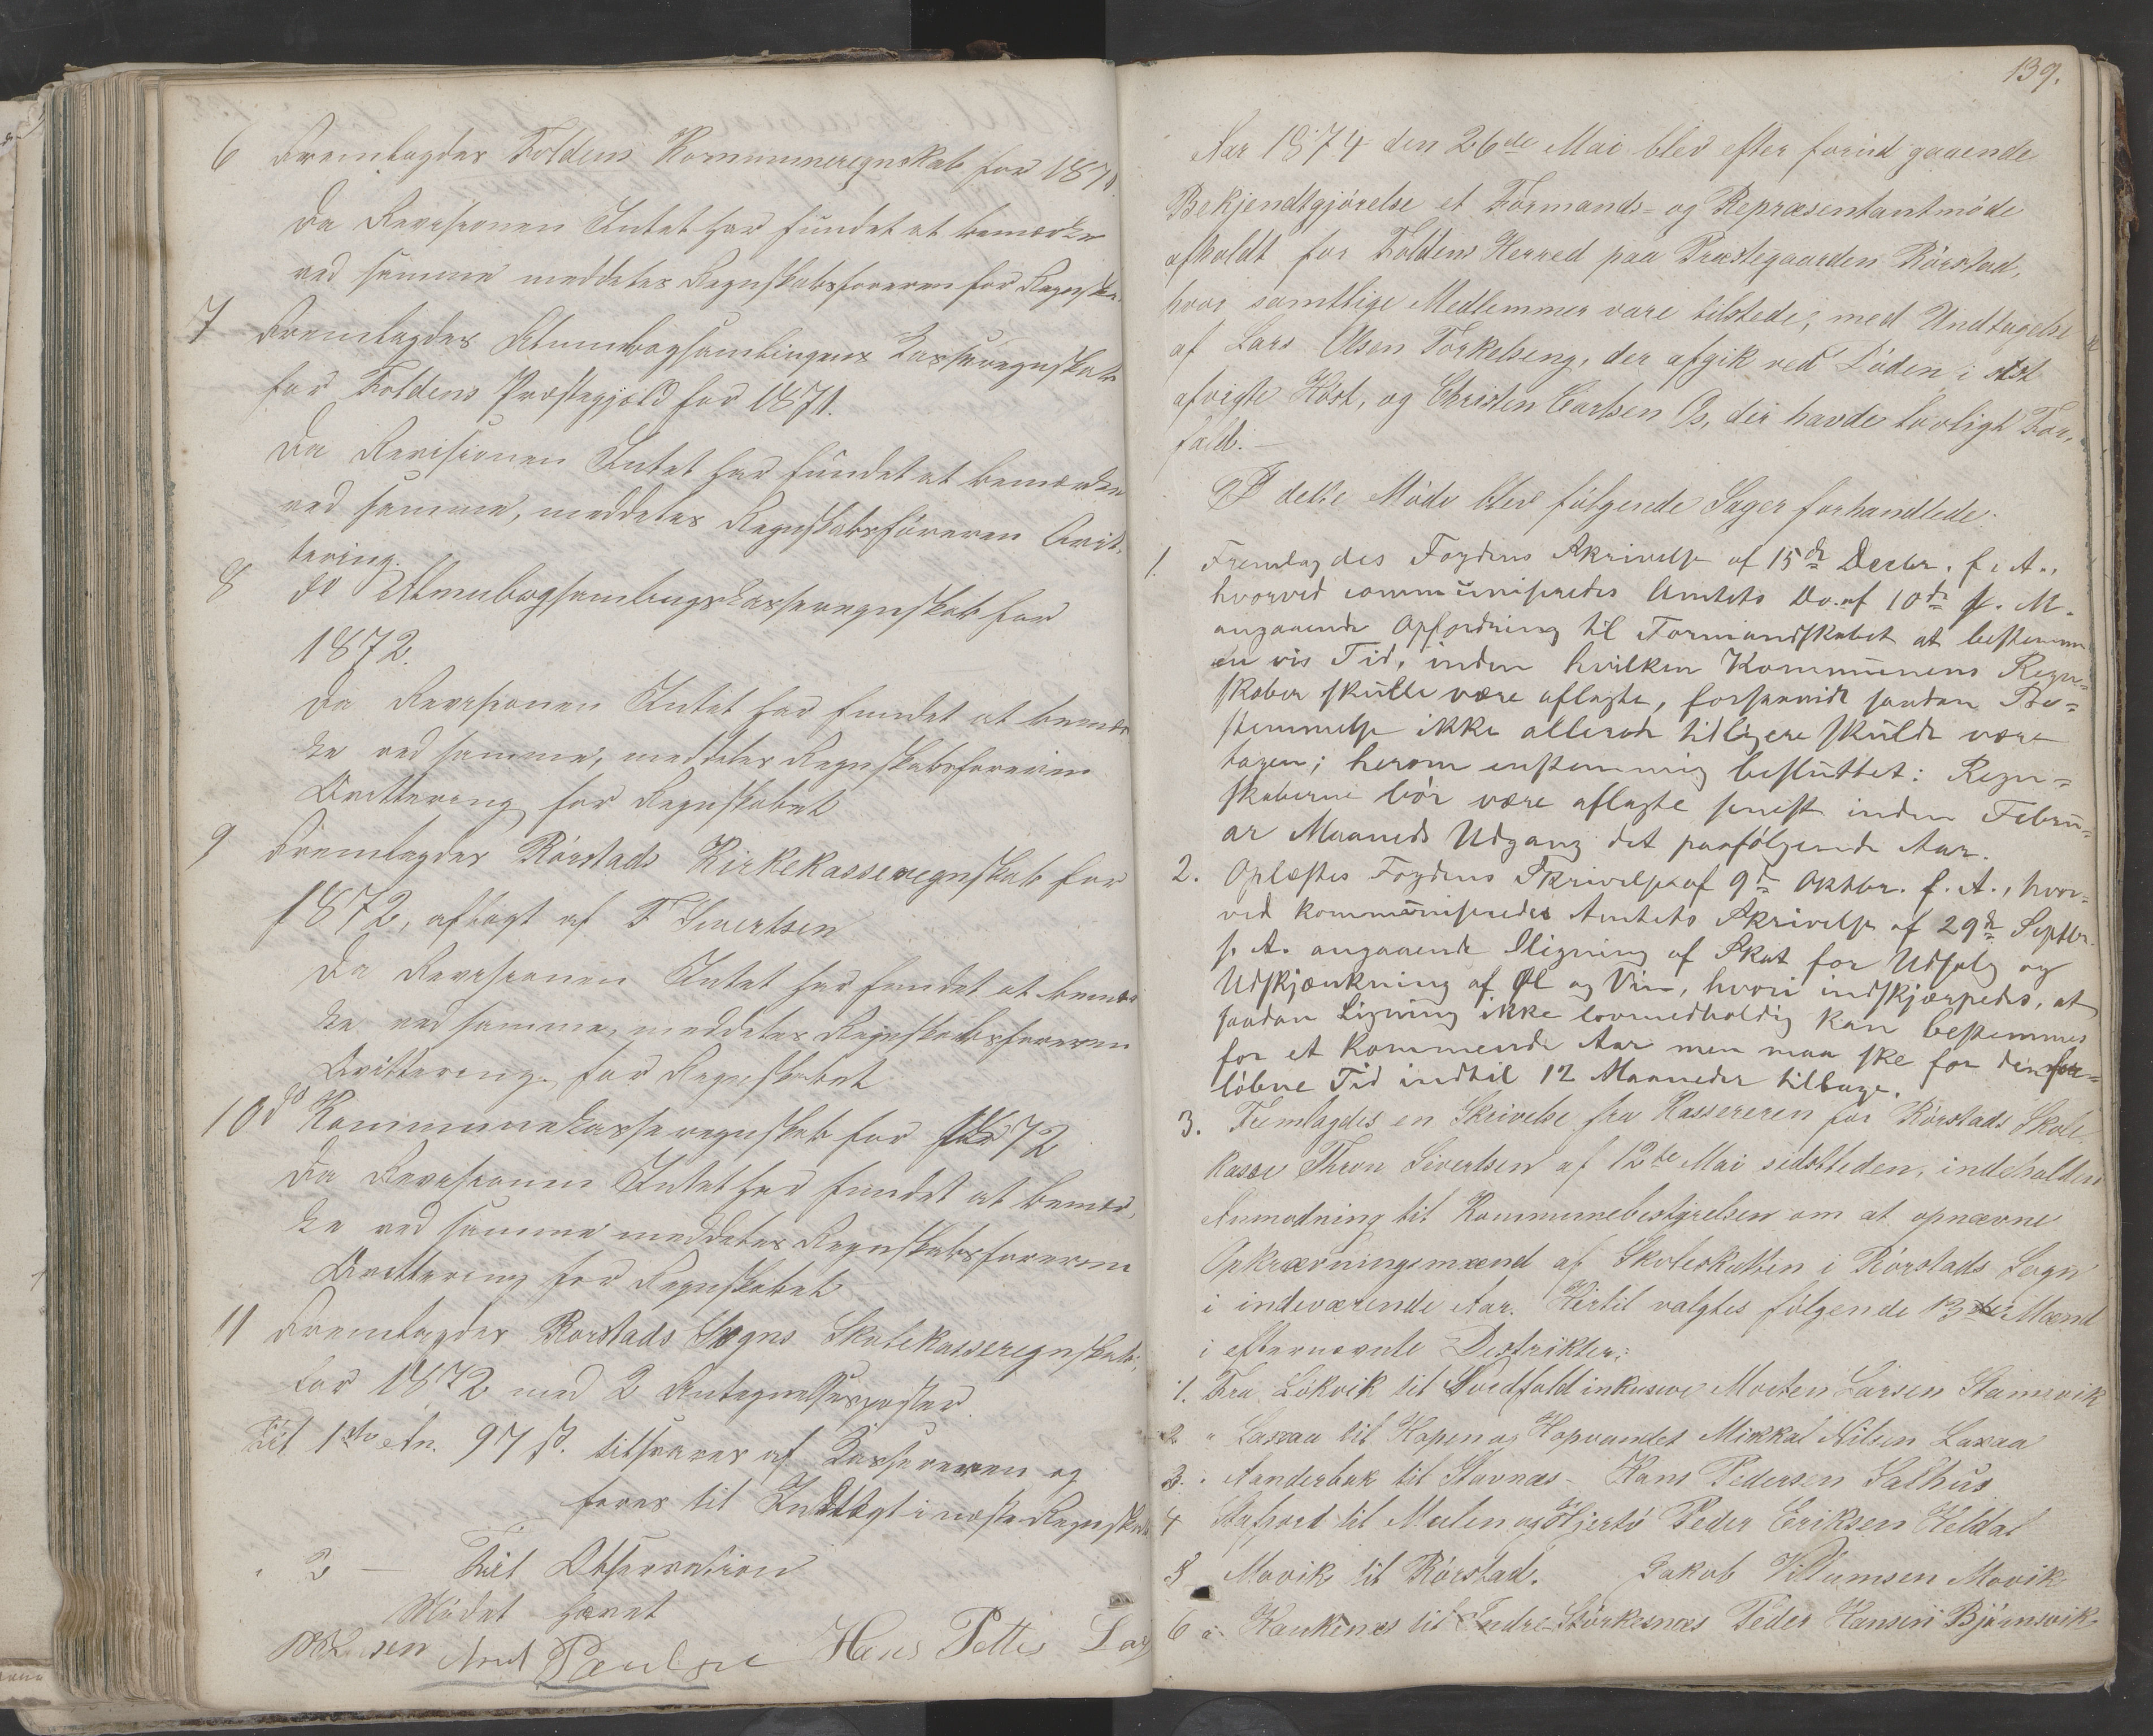 6 Fremlagdes Foldens Kornmagasinregnskab for 1871.
Da Revisionen Intet har fundet at bemærke
ved samme meddeles Regnskabsføreren for Regnska-
7 Fremlagdes Almuebogsamlingens Kasseregnskab
for Foldens Præstegjeld for 1871.
Da Revisionen Intet har fundet at bemærke
ved samme, meddeles Regnskabsføreren Qvit-
tering.
8 do Almuebogsamlingskasseregnskab for
1872.
Da Revisionen Intet har fundet at bemær-
ke ved samme, meddeles Regnskabsføreren
Qvittering for Regnskabet
9 Fremlagdes Rørstads Kirkekasseregnskab for
1872, aflagt af T Sivertsen
Da Revisionen Intet har fundet at bemær-
ke ved samme, meddeles Regnskabsføreren
Qvittering for Regnskabet
10 do Kommunekasseregnskab for 1872
Da Revisionen Intet har fundet at bemær-
ke ved samme meddeles Regnskabsføreren
Qvittering for Regnskabet
11 Fremlagdes Rørstads Sogns Skolekasseregnskab
for 1872 med 2 Antegnelsesposter
Til 1ste An. 97 ß. tilsvares af Kassereren og
føres til Indtægt i næste Regnskab
" 2 — Til Observation
Mødet hævet
Arnt Paulsen Hans Petter
139.
Aar 1874 den 26de Mai blev efter forud gaaende
Bekjendtgjørelse et Formands- og Repræsentantmøde
afholdt for Foldens Herred paa Præstegaarden Rørstad,
hvor samtlige Medlemmer vare tilstede, med Undtagelse
af Lars Olsen Torkelseng, der afgik ved Døden i sidst
afvigte Høst, og Christen Carlsen Os, der havde lovligt For-
fald. —
I dette Møde blev følgende Sager forhandlede:
1. Fremlagdes Fogdens Skrivelse af 15de Decbr. f. A.,
hvorved communiseredes Amtets Do. af 10de s. M.
angaaende Opfordring til Formandskabet at bestemme
en vis Tid, inden hvilken Kommunens Regn-
skaber skulle være aflagte, forsaavidt saadan Be-
stemmelse ikke allerede tidligere skulde være
tagen; herom enstemmig besluttet: Regn-
skaberne bør være aflagte senest inden Febru-
ar Maaneds Udgang det paafølgende Aar.
2. Oplæstes Fogdens Skrivelse af 9de Oktbr. f. A., hvor-
ved kommuniseredes Amtets Skrivelse af 29de Septbr.
s. A. angaaende Ligning af Skat for Udsalg og
Udskjænkning af Øl og Vin, hvori indskjærpedes, at
saadan Ligning ikke lovmedholdig kan bestemmes
for et kommende Aar men maa ske for den for-
løbne Tid indtil 12 Maaneder tilbage.
3. Fremlagdes en Skrivelse fra Kassereren for Rørstads Skole-
kasse Thron Sivertsen af 12te Mai sidstleden, indeholden
Anmodning til Kommunebestyrelsen om at opnævne
Opkrævningsmænd af Skoleskatten i Rørstads Sogn
i indeværende Aar. Hertil valgtes følgende 13 Mænd
i efternævnte Distrikter:
1. Fra Løkvik til Nordfold inkusive Morten Larsen Stamsvik
2 " Laxaa til Hopen og Hopvandet Mikkal Nilsen Laxaa
3. " Aanderbak til Stavnæs - Hans Pedersen Salhus
4 til Mulen og Hjertø Peder Eriksen Heldal
5 Movik til Rørstad. Jakob Villumsen Movik
6 " til Indre Størkesnæs Peder Hansen Bjørnsvik